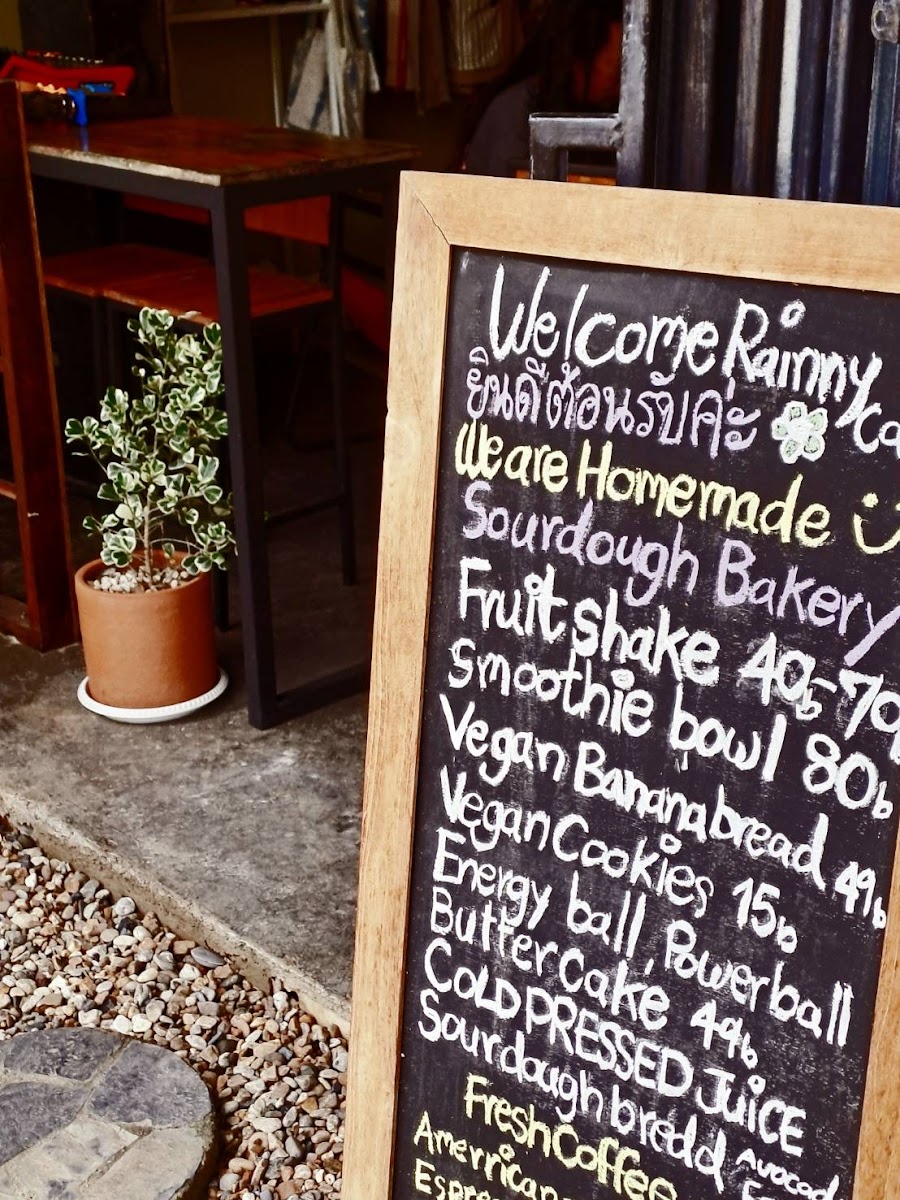 Welcome Rainny
ยินดีต้อนรับค่ะ
We are Homemade
Sourdough Bakery
Fruit shake 40b-70
Smoothie bowl 80b
Vegan Banana bread 49b
Vegan Cookies 15b
Energy ball, Powerball
Butter Cake 49b
COLD PRESSED JUiCE
Sourdough bredd
Fresh Coffee